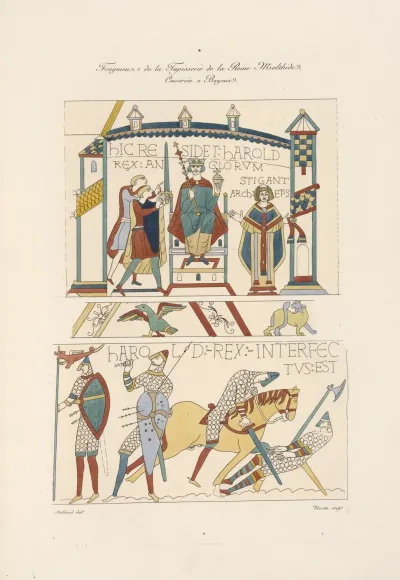 Fragmens de la Tapisserie de la Reine Mathilde,
Conservée a Bayeux.
hIC RE SIDET: hAROLD
REX: AN GLORVM
STIGANT
ARChI EPS
hAROL D:- REX:- INTERFEC
TVS: EST